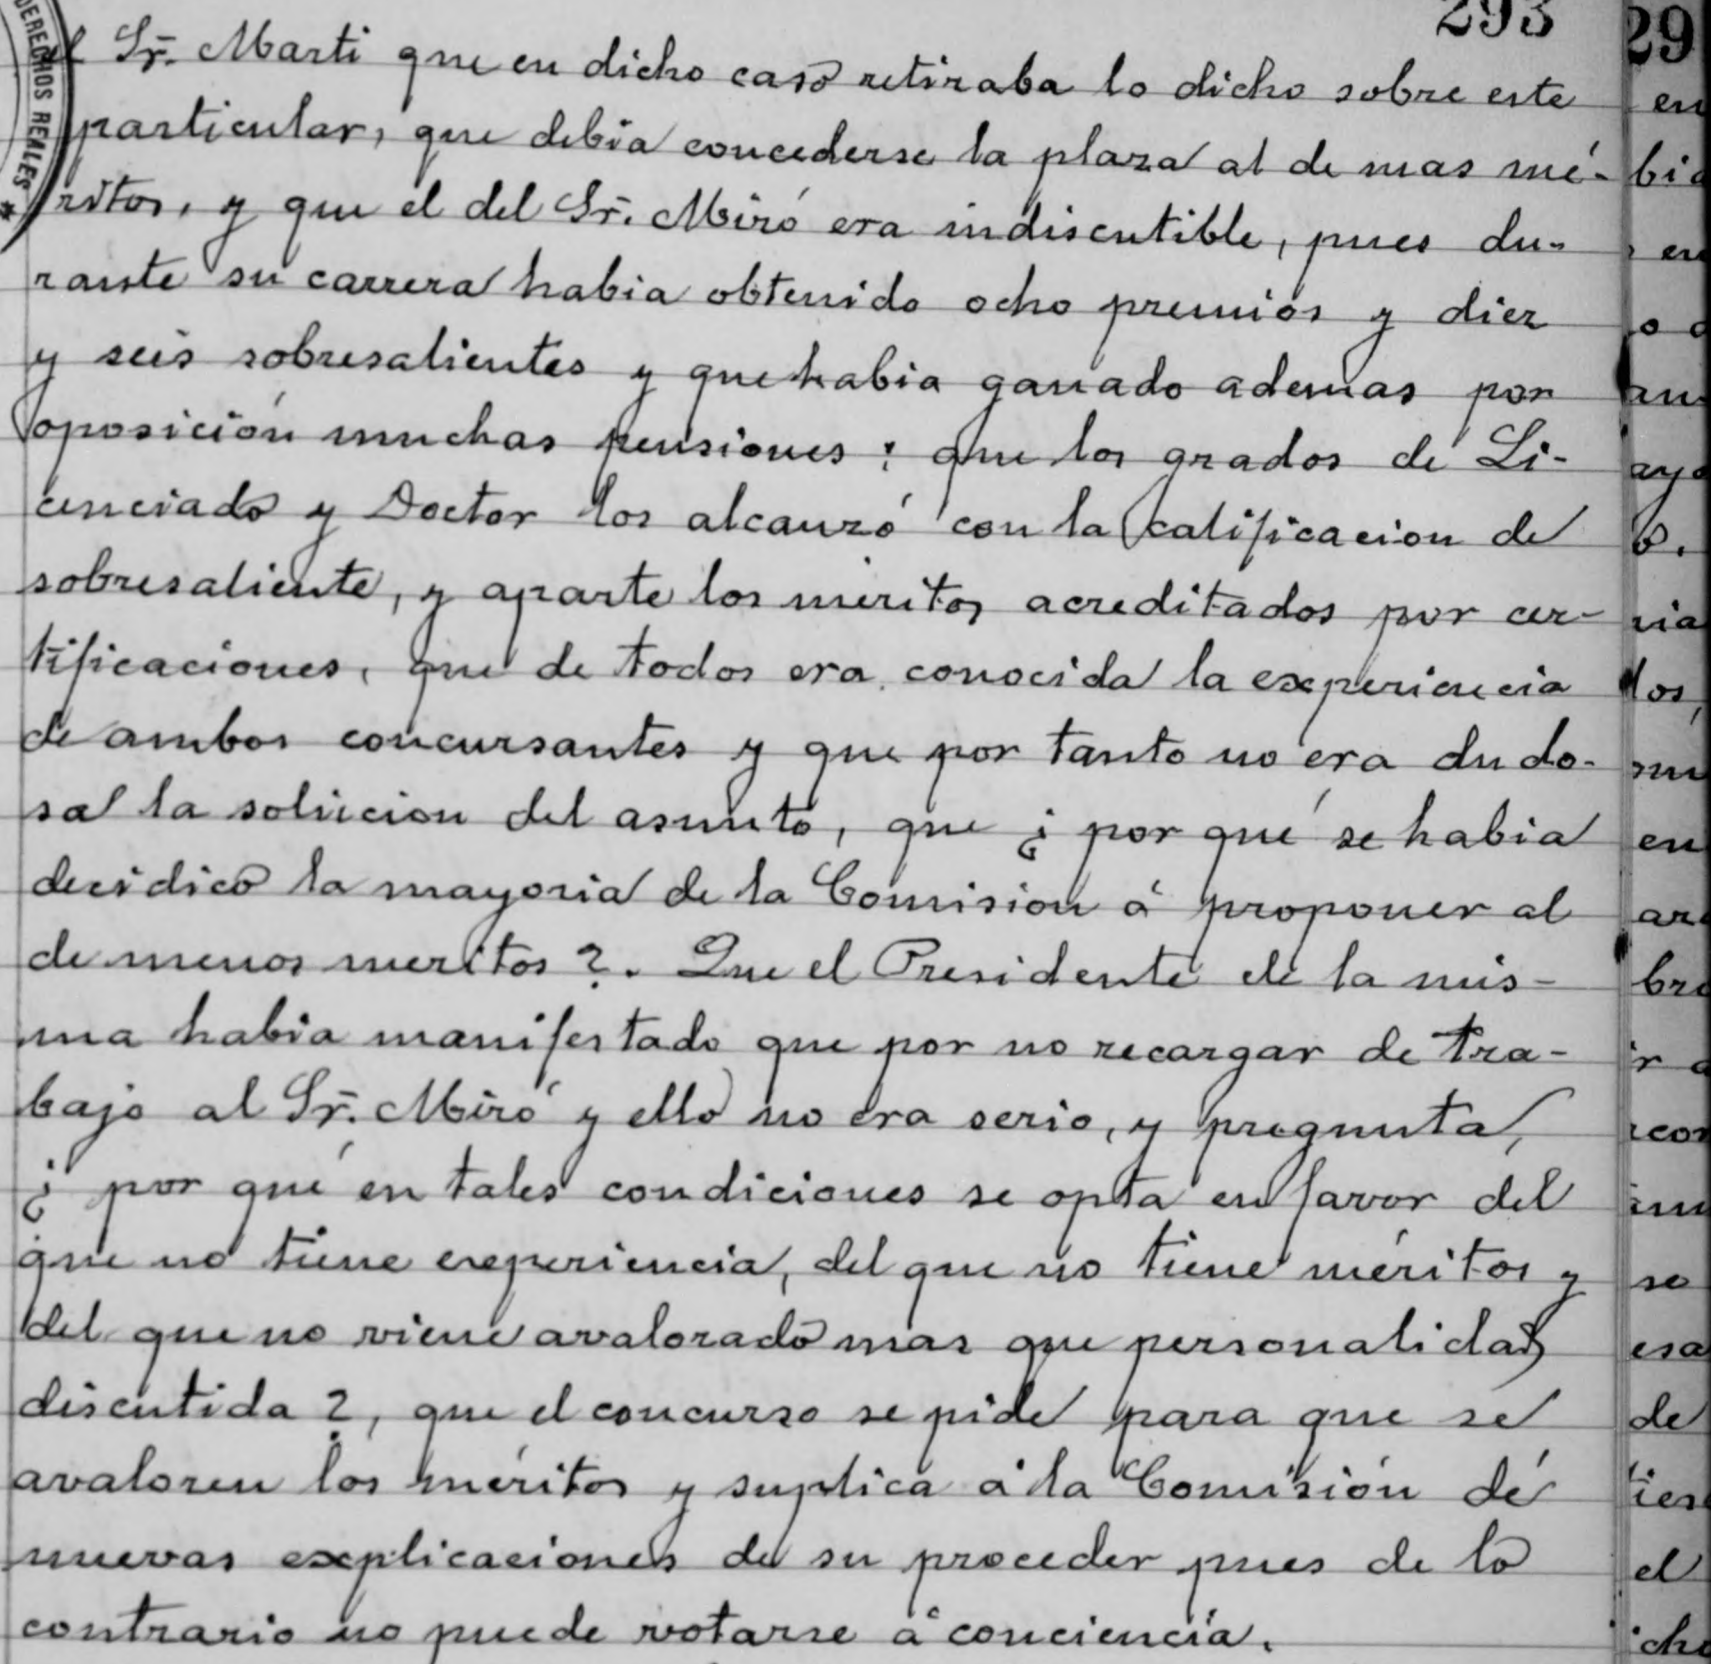 293
DERECHOS REALES *
el Sr. Marti que en dicho caso retiraba lo dicho sobre este
particular, que debia concederse la plaza al de mas mé-
ritos, y que el del Sr. Miró era indiscutible, pues du-
rante su carrera habia obtenido ocho premios y diez
y seis sobresalientes y que habia ganado ademas por
oposición muchas pensiones; que los grados de Li-
cenciado y Doctor los alcanzó con la calificacion de
sobresaliente, y aparte los meritos acreditados por cer-
tificaciones, que de todos era conocida la experiencia
de ambos concursantes y que por tanto no era dudo-
sa la solucion del asunto, que ¿ por qué se habia
decidico la mayoria de la Comision á proponer al
de menos meritos ?. Que el Presidente de la mis-
ma habia manifestado que por no recargar de tra-
bajo al Sr. Miró y ello no era serio, y pregunta,
¿ por qué en tales condiciones se opta en favor del
que no tiene experiencia, del que no tiene méritos y
del que no viene avalorado mas que personalidad
discutida ?, que el concurso se pide para que se
avaloren los méritos y suplica á la Comisión dé
nuevas explicaciones de su proceder pues de lo
contrario no puede votarse á conciencia.
29
en